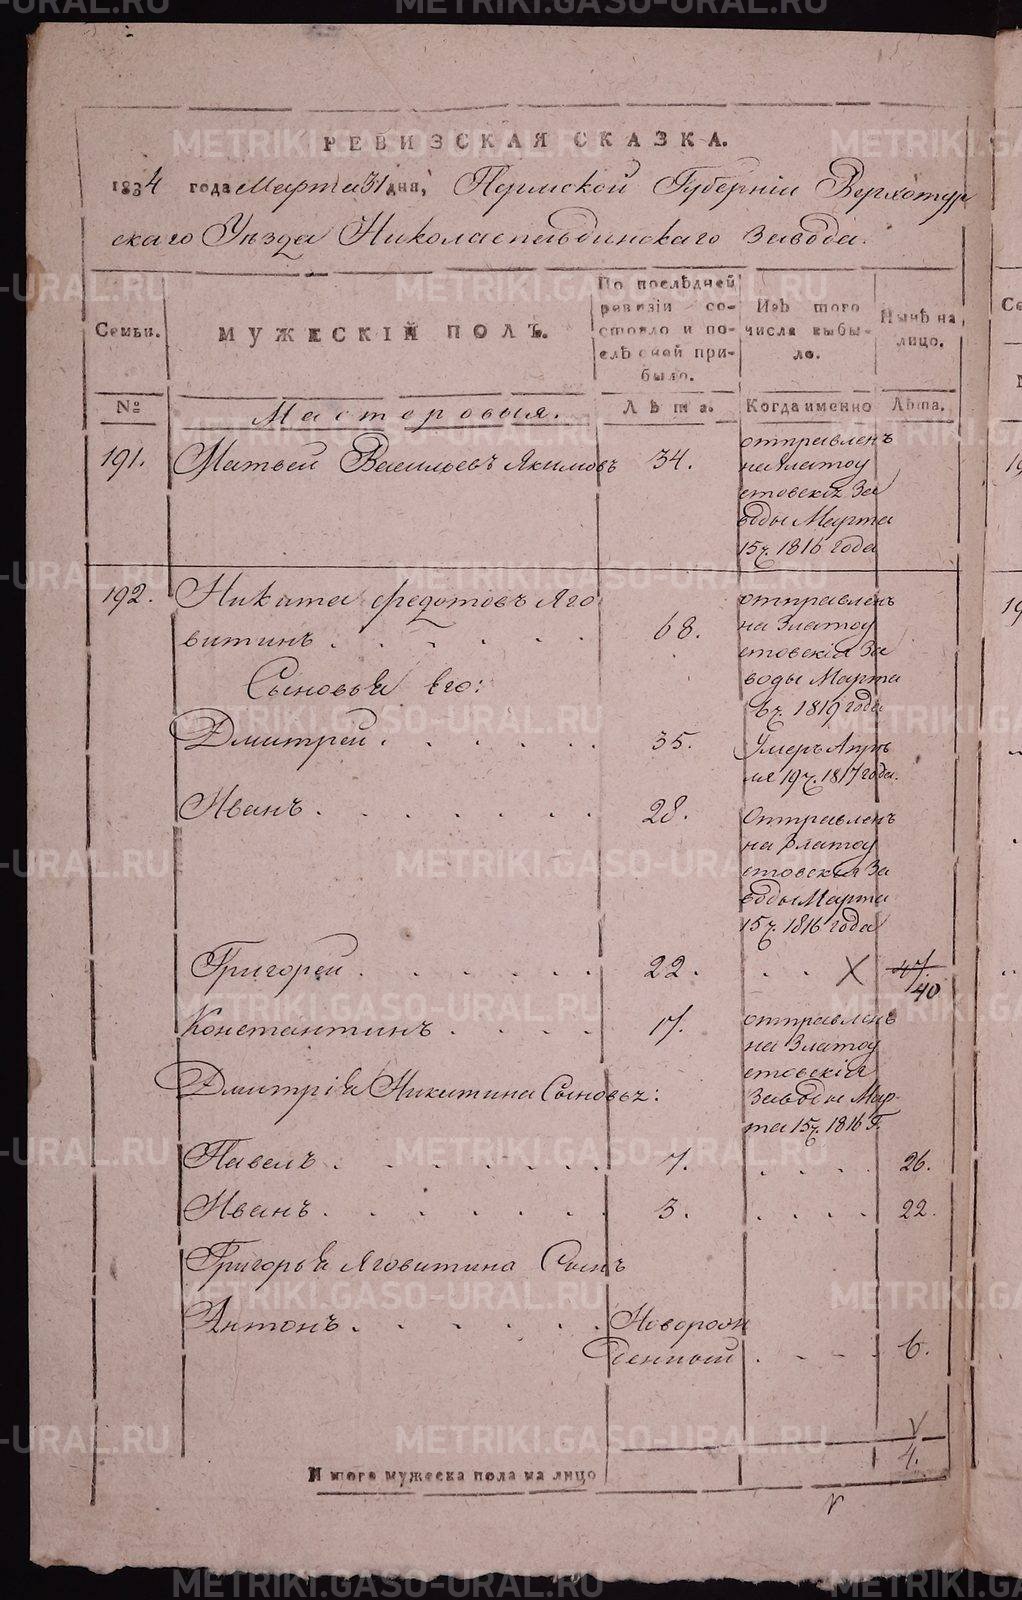 РЕВИЗСКАЯ СКАЗКА.
1834 года Марта 31 дня, Пермской Губерніи Верхотур
скаго Уѣзда Николаепавдинскаго завода.
Семьи.
МУЖЕСКІЙ ПОЛЪ.
По послѣдней
ревизіи со-
стояло и по-
слѣ оной при-
было.
Изъ того
числа выбы-
ло.
Нынѣ на
лицо.
№
Мастеровыя.
Лѣта.
Когда именно
Лѣта.
191.
Матвей Васильевъ Якимовъ
34.
отправленъ
на Златоу
стовскія За
воды Марта
15ч. 1816 года
192.
Никита Федотовъ Яго
витинъ
68.
отправленъ
на Златоу
стовскія За
воды Марта
ч. 1819 года
Сыновья его:
Дмитрей
35.
Умеръ Апрѣ
ля 19ч. 1817 года.
Иванъ
28.
Отправленъ
на Златоу
стовскія За
воды Марта
15ч. 1816 года
Григорей
22.
X
47.
40
Константинъ
17.
отправленъ
на Златоу
стовскія
Заводы Мар-
та 15ч. 1816 Г.
Дмитрія Никитина Сыновья:
Павелъ
7.
26.
Иванъ
3.
22.
Григорья Яговитина Сынъ
Антонъ
Новорож
денный
6.
Итого мужеска пола на лицо
4.
METRIKI.GASO-URAL.RU